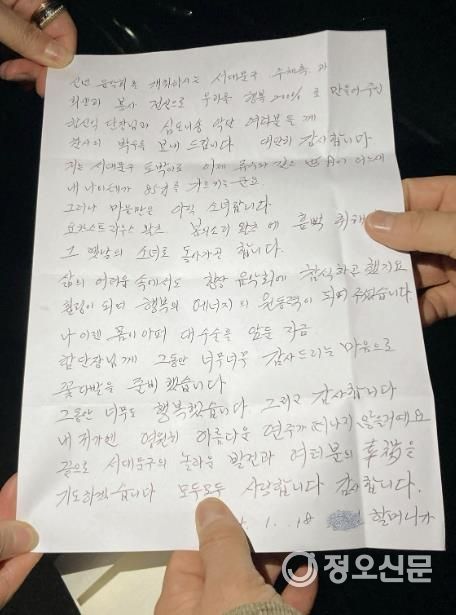 신년 음악회를 개최하시는 서대문구 주최측과
희생과 봉사 정신으로 우리를 행복 200%로 만들어주신
함신익 단장님과 심포니송 악단 여러분들께
감사의 박수를 보내 드립니다 대단히 감사합니다
저는 서대문구 토박이로 이제 유수와 같은 歲月이 어느새
내 나이테가 를 가르키는군요
그러나 마음만은 아직 소녀랍니다
요한스트라우스 왈츠 봄의소리 왈츠에 흠뻑 취해
그 옛날의 소녀로 돌아가곤 합니다.
삶의 어려움 속에서도 항상 음악회에 참석하곤 했지요
힐링이 되며 행복의 에너지의 원동력이 되어 주었습니다.
나 이젠 몸이 아파 대수술을 앞둔 지금
함단장님께 그동안 너무너무 감사드리는 마음으로
꽃다발을 준비했습니다
그동안 너무도 행복했습니다 그리고 감사합니다
내 귀가엔 영원히 아름다운 연주가 떠나지 않을거예요
끝으로 서대문구의 놀라운 발전과 여러분의 幸福을
기도하겠습니다 모두모두 사랑합니다 감사합니다.
1. 18 할머니가
정오신문